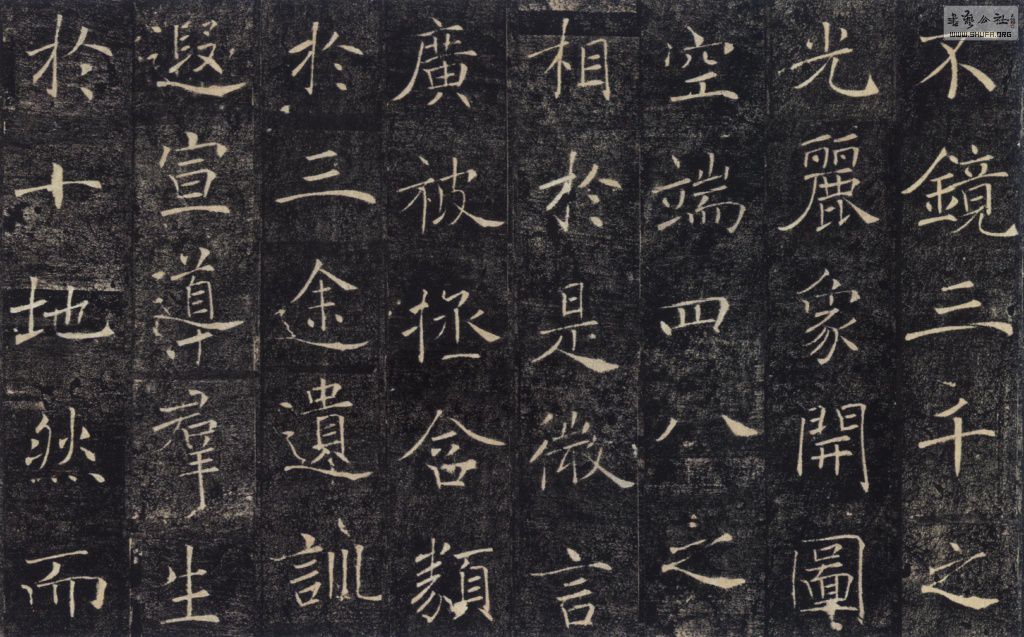 不鏡三千之
光麗象開圖
空端四八之
相於是微言
廣被拯含類
於三途遺訓
遐宣導羣生
於十地然而
書藝公社
WWW.SHUFA.ORG